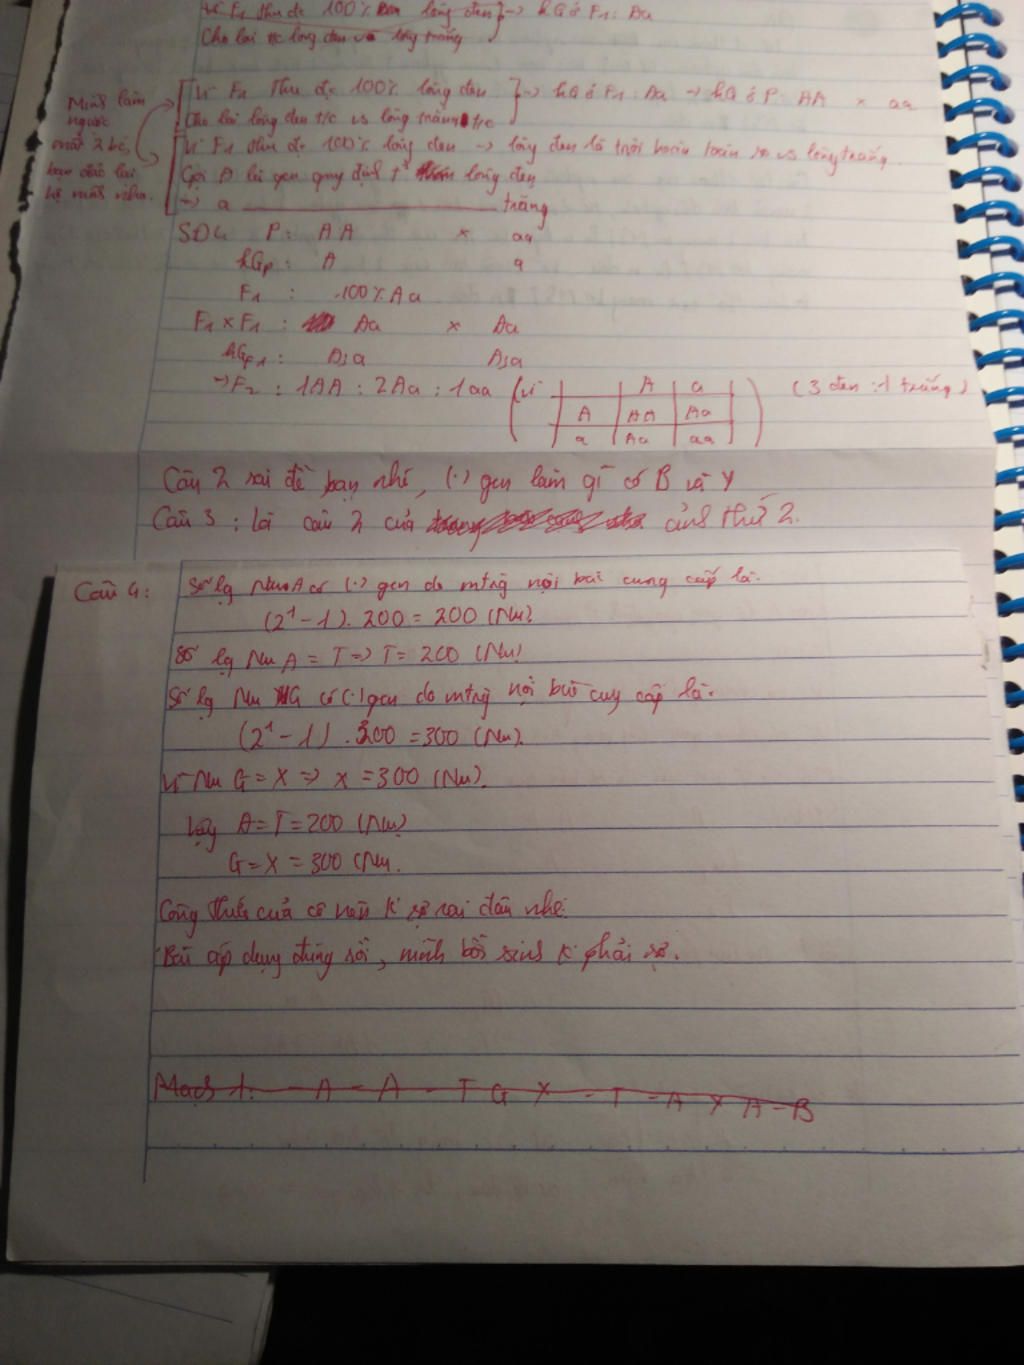 Vì F1 thu đc 100% lông đen → KG ở F1: Aa
Cho lai t/c lông đen và lông trắng
Mình làm
ngược
mất 2 bé,
bạn đảo lại
hộ mình nha.
Vì F1 thu đc 100% lông đen → KG ở F1: Aa → KG ở P: AA x aa
Cho lai lông đen t/c vs lông trắng t/c
Vì F1 thu đc 100% lông đen → lông đen là trội hoàn toàn so vs lông trắng.
Gọi A là gen quy định t² lông đen
→ a ——— trắng
SĐL P: AA x aa
KGp: A a
F1 : 100% Aa
F1 x F1 : Aa x Aa
KGF1: A,a A,a
→ F2 : 1AA : 2Aa : 1aa (vì A a (3 đen : 1 trắng)
A AA Aa
a Aa aa )
Câu 2 sai đề bạn nhé, (.) gen làm gì có B và Y
Câu 3 : Là câu 2 của ảnh thứ 2.
Câu 4: Số lg Nu A có (.) gen do mtrg nội bài cung cấp là.
(2¹ - 1). 200 = 200 (Nu).
Số lg Nu A = T => T = 200 (Nu)
Số lg Nu G có (.) gen do mtrg nội bào cung cấp là.
(2¹ - 1) . 300 = 300 (Nu).
Vì Nu G = X => X = 300 (Nu).
Vậy A = T = 200 (Nu)
G = X = 300 (Nu.
Công thức của cô nên k sợ sai đâu nhé.
Bài áp dụng đúng rồi, mình bồi sinh k phải sợ.
Mạch 1: - A - A - T G X - T - A X A - B